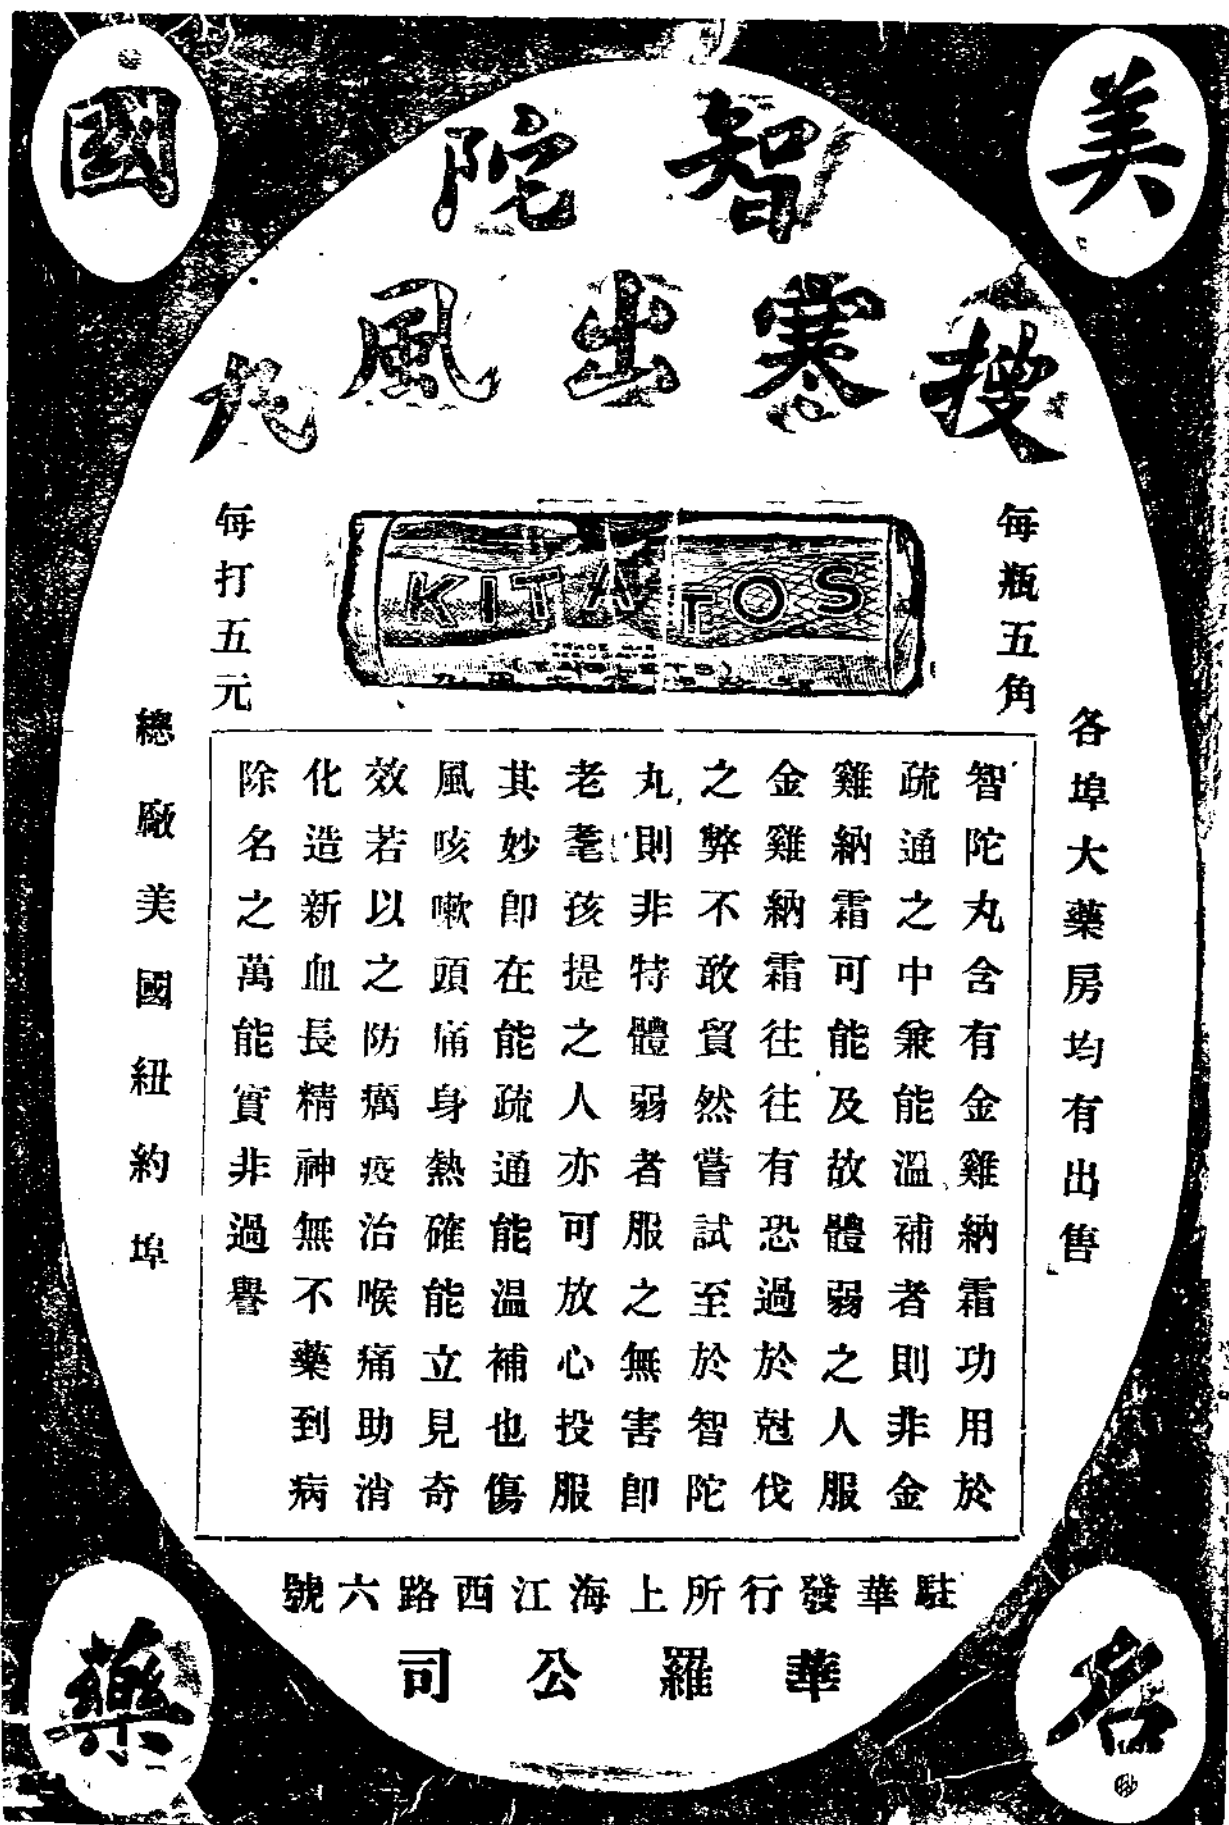 美國
名藥
智陀
搜寒出風丸
每瓶五角
每打五元
KITATOS
各埠大藥房均有出售
總廠美國紐約埠
智陀丸含有金雞納霜功用於
疏通之中兼能溫補者則非金
雞納霜可能及故體弱之人服
金雞納霜往往有恐過於尅伐
之弊不敢貿然嘗試至於智陀
丸則非特體弱者服之無害卽
老耄孩提之人亦可放心投服
其妙卽在能疏通能溫補也傷
風咳嗽頭痛身熱確能立見奇
效若以之防癘疫治喉痛助消
化造新血長精神無不藥到病
除名之萬能實非過譽
駐華發行所上海江西路六號
華羅公司